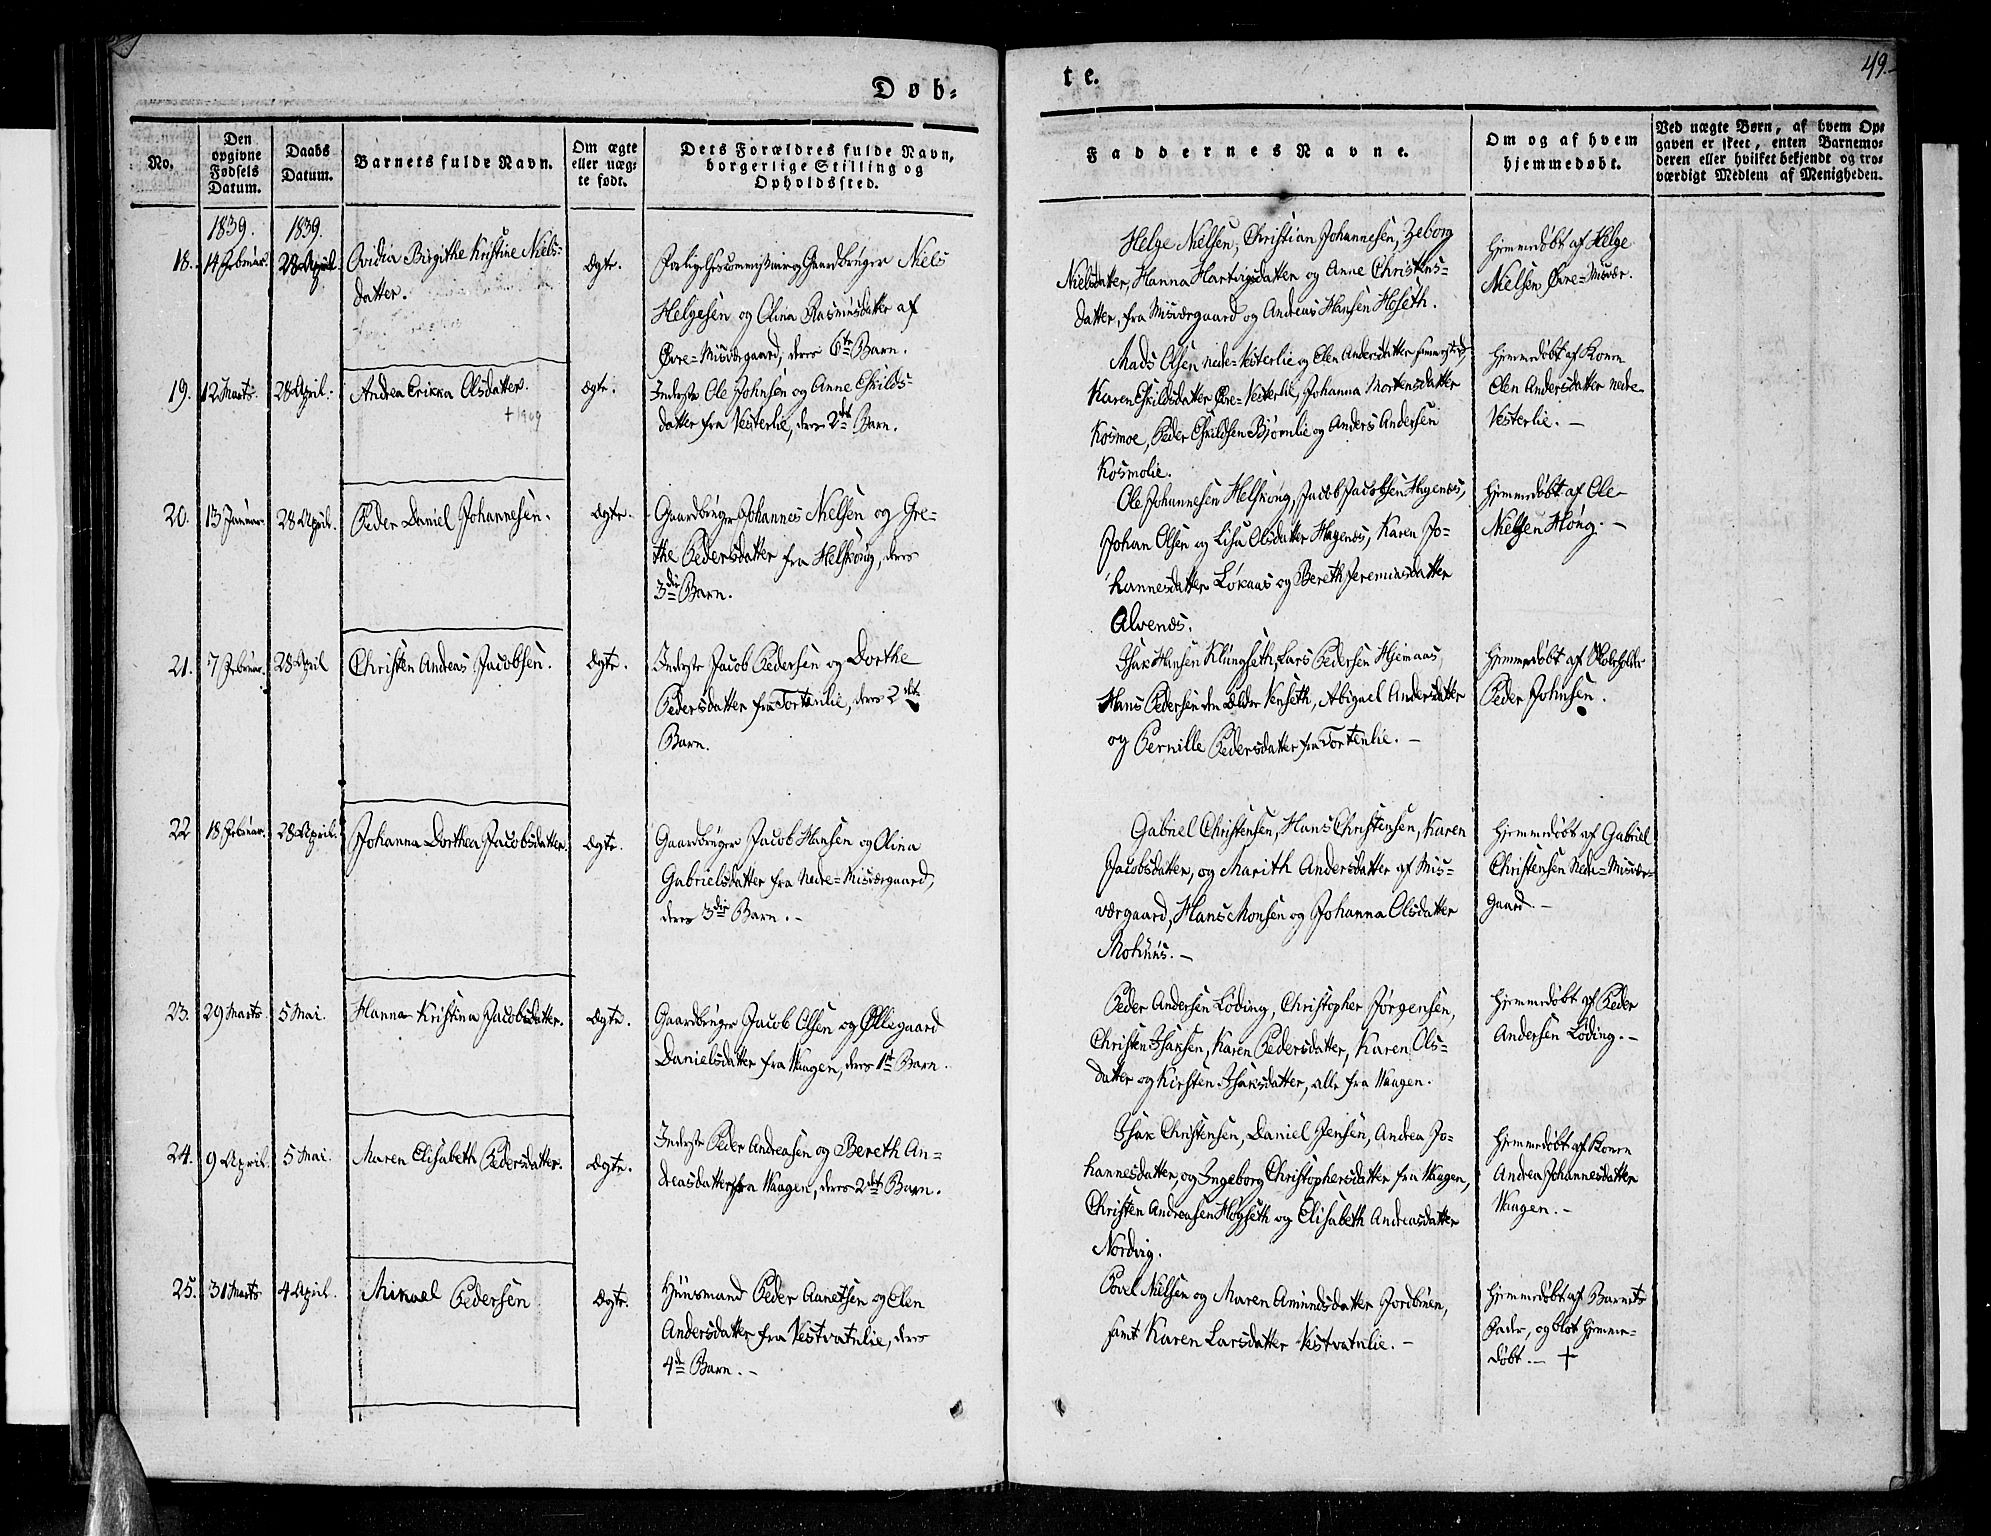 Døb-
te.
49.
No.
Den
opgivne
Fødsels
Datum.
Daabs
Datum.
Barnets fulde Navn.
Om ægte
eller uæg-
te født.
Dets Forældres fulde Navn,
borgerlige Stilling og
Opholdssted.
Faddernes Navne.
Om og af hvem
hjemmedøbt.
Ved uægte Børn, af hvem Op-
gaven er skeet, enten Barnemo-
deren eller hvilket bekjendt og tro-
værdigt Medlem af Menigheden.
1839.
1839.
18.
14 Februar.
28 April
Ovidia Birgithe Kristine Niels-
datter.
Ægte.
Forligelsescommissair og Gaardbruger Niels
Helgesen og Olina Rasmusdatter af
Øvre=Misværgaard, deres 6te Barn.
Helge Nielsen, Christian Johannesen, Zeborg
Nielsdatter, Hanna Hartvigsdatter og Anne Christens-
datter, fra Misværgaard og Andreas Hansen Hoseth.
Hjemmedøbt af Helge
Nielsen Øvre=Misvær.
19.
12 Marts.
28 April.
Andrea Erikka Olsdatter.
+ 1909
Ægte.
Inderst Ole Johnsen og Anne Eskilds-
datter fra Vesterlie, deres 2det Barn.
Mads Olsen nede=Vesterlie og Elen Andersdatter
Karen Eskildsdatter Øvre=Vesterlie, Johanna Mortensdatter
Kosmoe, Peder Eskildsen Bjørnlie og Anders Andersen
Kosmolie.
Hjemmedøbt af Konen
Elen Andersdatter nede-
Vesterlie. —
20.
13 Januar.
28 April.
Peder Daniel Johannesen.
Ægte.
Gaardbruger Johannes Nielsen og Gre-
the Pedersdatter fra Helskoug, deres
3die Barn.
Ole Johannesen Helskoug, Jacob Jacobsen Hagenæs,
Johan Olsen og Lisa Olsdatter Hagenæs, Karen Jo-
hannesdatter Løkaas og Bereth Jeremiasdatter
Alvenæs.
Hjemmedøbt af Ole
Nielsen Houg. —
21.
7 Februar.
28 April
Christen Andreas Jacobsen.
Ægte.
Inderst Jacob Pedersen og Dorthe
Pedersdatter fra Tortenlie, deres 2det
Barn.
Isak Hansen Klungseth, Lars Pedersen Hjemaas,
Hans Pedersen den Ældre Venseth, Abigael Andersdatter
og Pernille Pedersdatter fra Tortenlie. —
Hjemmedøbt af Skoleholder
Peder Johnsen.
22
18 Februar.
28 April.
Johanna Dorthea Jacobsdatter.
Ægte.
Gaardbruger Jacob Hansen og Olina
Gabrielsdatter fra Nedre=Misværgaard,
deres 3die Barn. —
Gabriel Christensen, Hans Christensen, Karen
Jacobsdatter, og Marith Andersdatter af Mis-
værgaard, Hans Monsen og Johanna Olsdatter
Mohuus. —
Hjemmedøbt af Gabriel
Christensen Nede=Misvær-
gaard. —
23.
29 Marts
5 Mai.
Hanna Kristina Jacobsdatter.
Ægte.
Gaardbruger Jacob Olsen og Øllegaard
Danielsdatter fra Waagen, deres 1st Barn.
Peder Andersen Løding, Christopher Jørgensen,
Christen Isaksen, Karen Pedersdatter, Karen Ols-
datter og Kirsten Isaksdatter, alle fra Waagen.
Hjemmedøbt af Peder
Andersen Løding. —
24.
9 April.
5 Mai.
Maren Elisabeth Pedersdatter.
Ægte.
Inderst Peder Andreasen og Bereth An-
dreasdatter fra Waagen, deres 2det Barn.
Isak Christensen, Daniel Jensen, Andrea Jo-
hannesdatter, og Ingeborg Christophersdatter fra Waagen,
Christen Andreasen Hogseth og Elisabeth Andreasdatter
Nordvig.
Hjemmedøbt af Konen
Andrea Johannesdatter
Waagen. —
25.
31 Marts
4 April.
Mikael Pedersen
Ægte.
Huusmand Peder Aanetsen og Elen
Andersdatter fra Vestvatnlie, deres
4de Barn. —
Povel Nielsen og Maren Amundsdatter Jordbruen,
samt Karen Larsdatter Vestvatnlie. —
Hjemmedøbt af Barnets
Fader, og blot hjemme-
døbt. — +